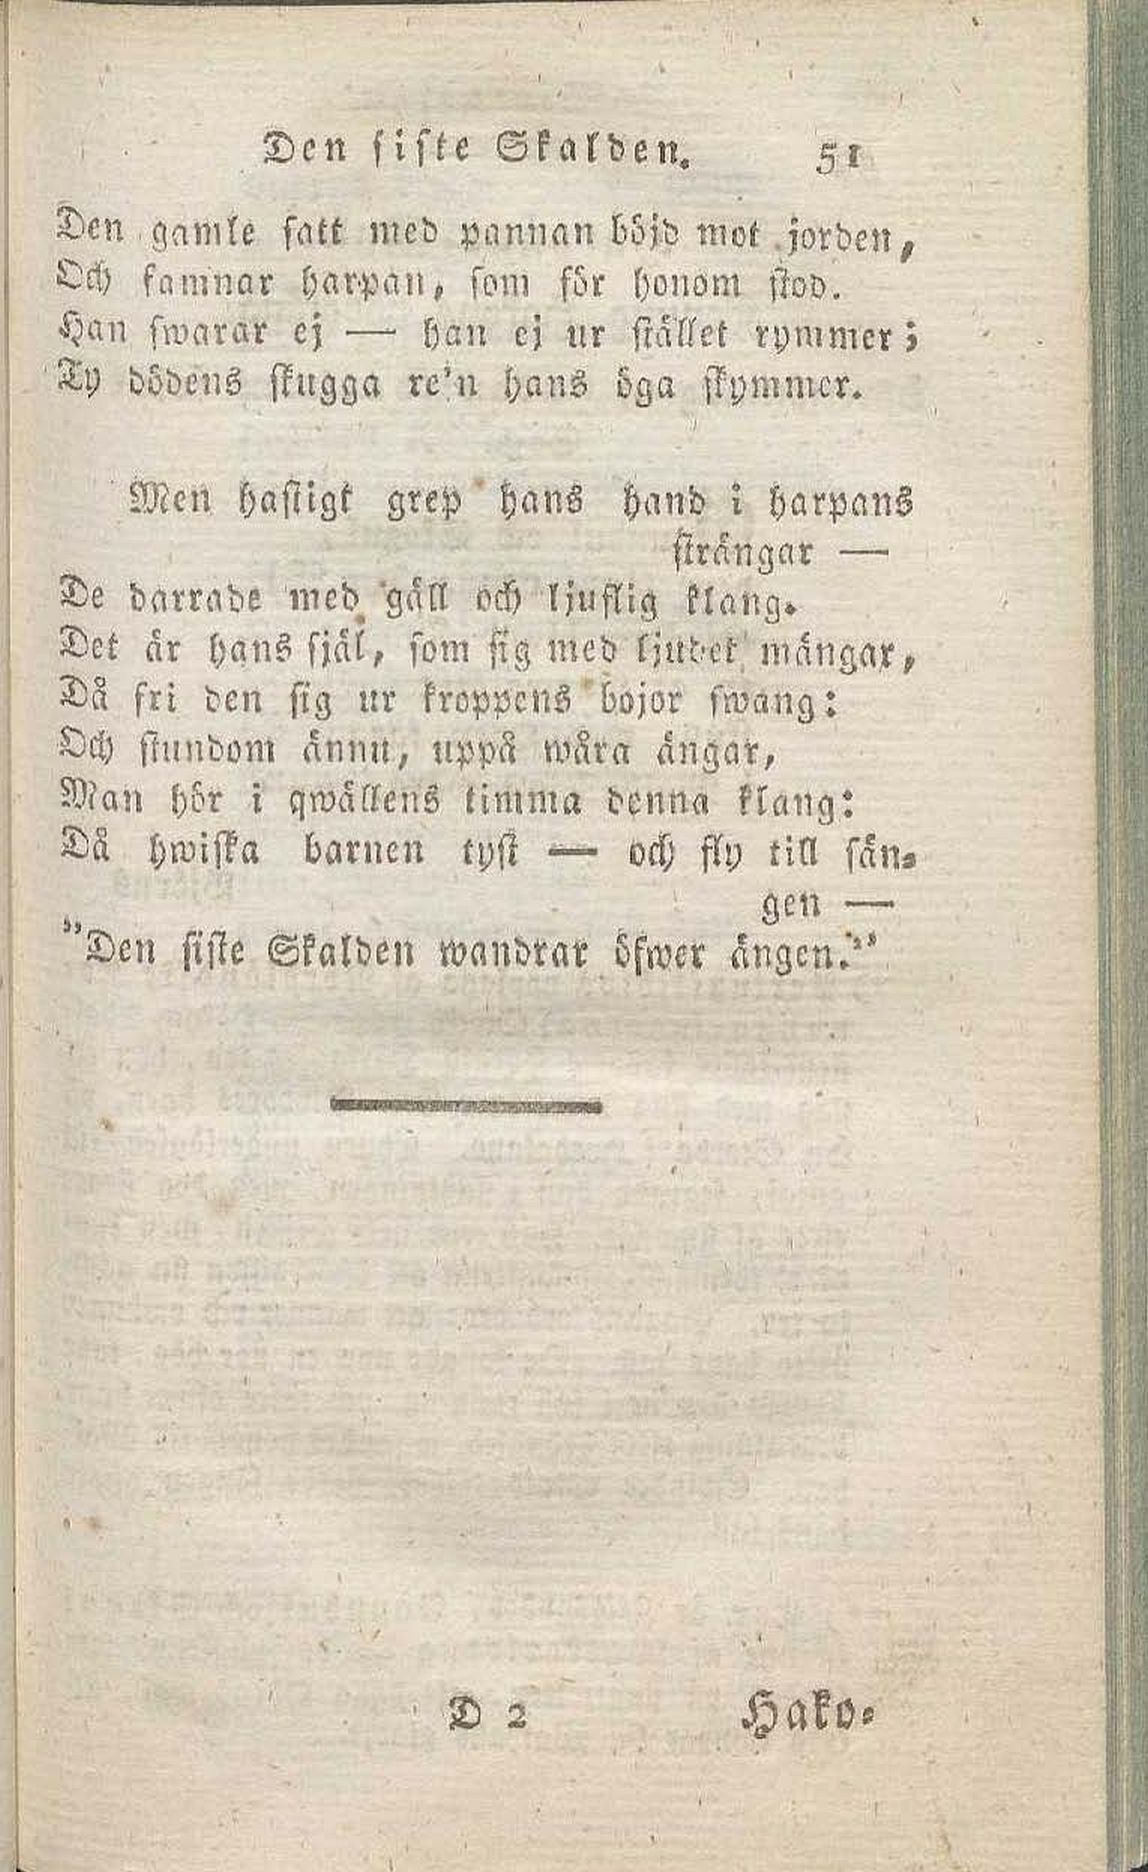 Den siste Skalden. 51
Den gamle satt med pannan böjd mot jorden,
Och famnar harpan, som för honom stod.
Han swarar ej — han ej ur stället rymmer;
Ty dödens skugga re'n hans öga skymmer.
Men hastigt grep hans hand i harpans
strängar —
De darrade med gäll och ljuflig klang.
Det är hans själ, som sig med ljudet mängar,
Då fri den sig ur kroppens bojor swang:
Och stundom ännu, uppå wåra ängar,
Man hör i qwällens timma denna klang:
Då hwiska barnen tyst — och fly till sän-
gen —
"Den siste Skalden wandrar öfwer ängen."
D 2 Hako-